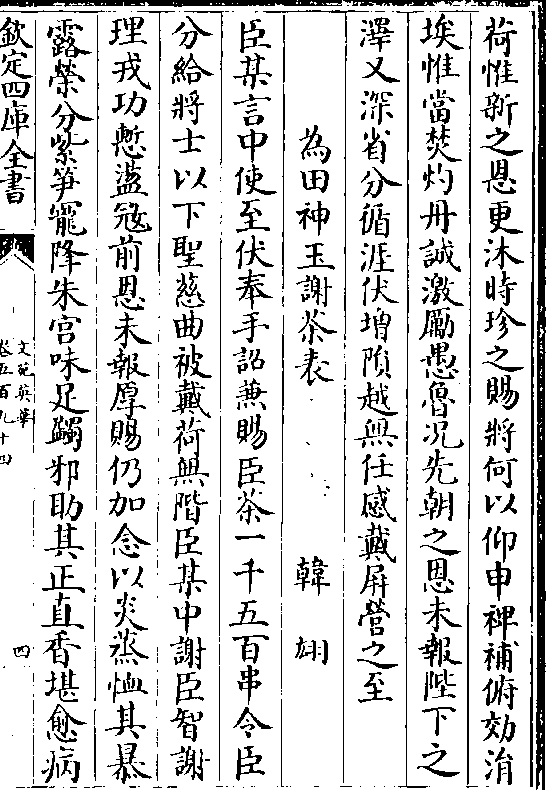 荷惟新之恩更沐時珍之賜將何以仰申裨補俯効涓
埃惟當焚灼丹誠激厲愚魯况先朝之恩未報陛下之
澤又深省分循涯伏增隕越無任感戴屏營之至
為田神玉謝茶表 韓翃
臣某言中使至伏奉手詔兼賜臣茶一千五百串令臣
分給將士以下聖慈曲被戴荷無階臣某中謝臣智謝
理戎功慙盪宼前恩未報厚賜仍加念以炎蒸恤其暴
露榮分紫笋寵降朱宫味足蠲邪助其正直香堪愈病
欽定四庫全書
文苑英華
卷五百九十四
四